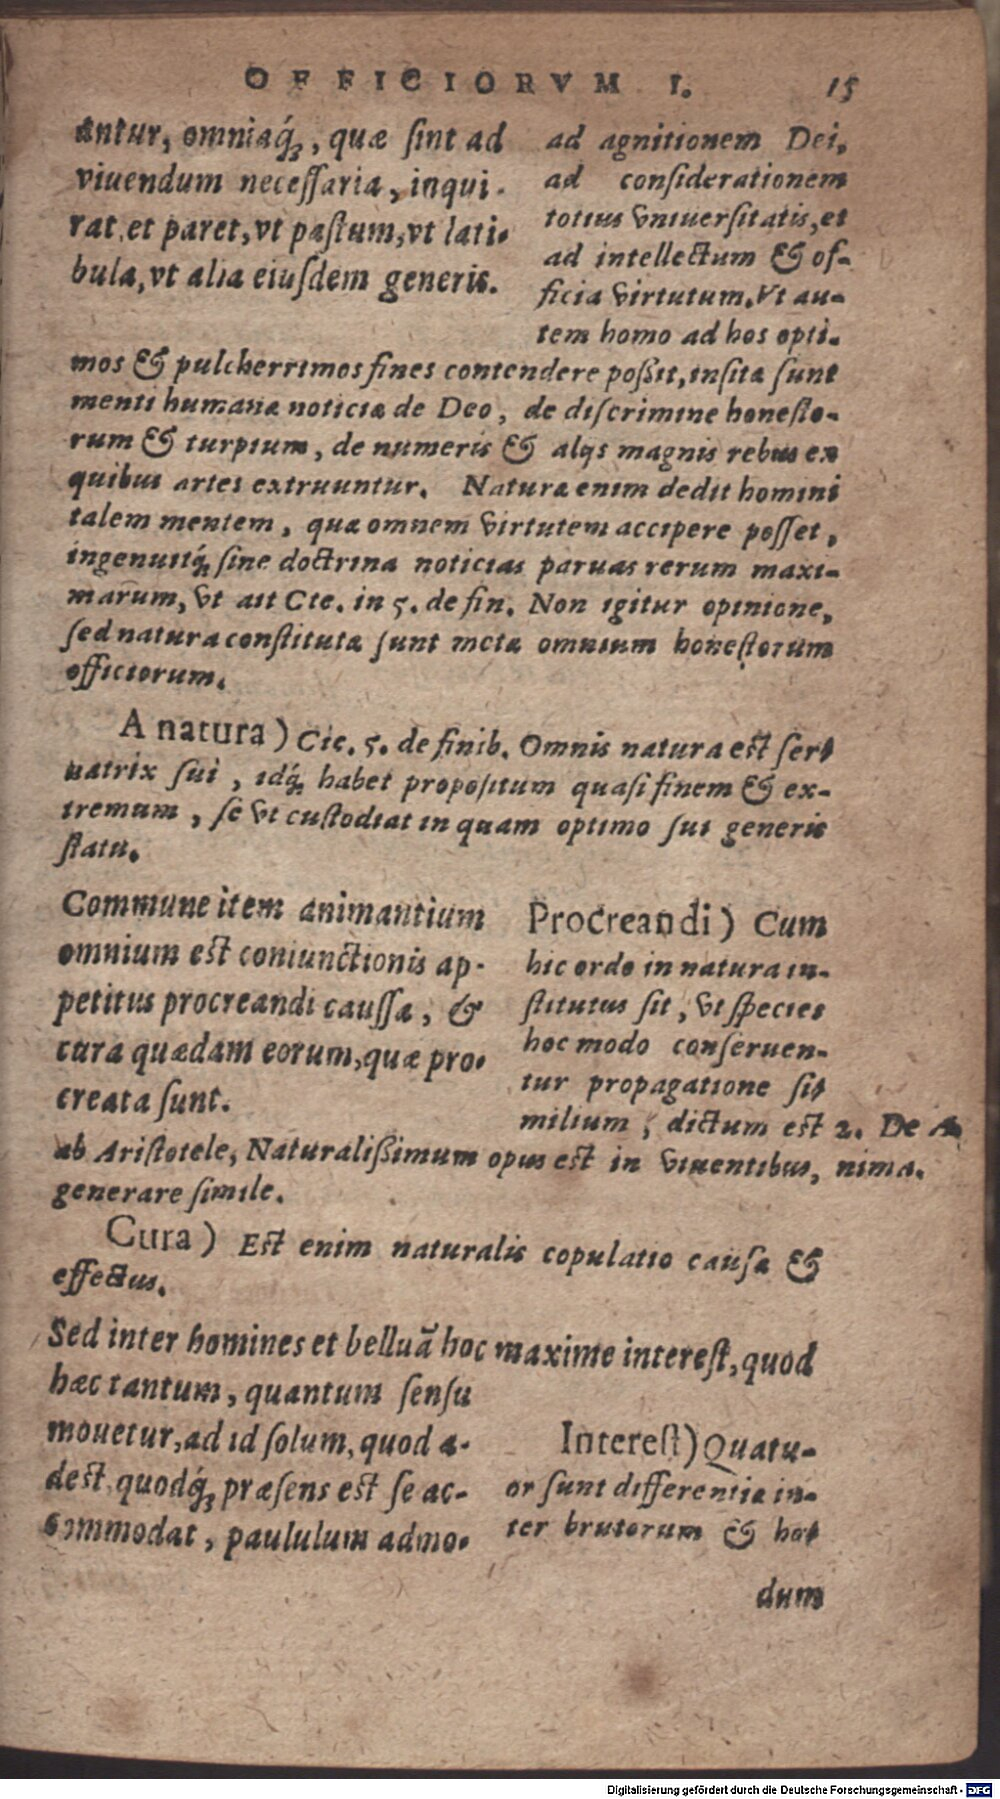 OFFICIORVM I. 15
antur, omniaq́ꝫ, quæ ſint ad
viuendum neceſſaria, inqui-
rat et paret, vt paſtum, vt lati-
bula, vt alia eiuſdem generis.
ad agnitionem Dei,
ad conſiderationem
totius vniuerſitatis, et
ad intellectum & of-
ficia virtutum. Vt au-
tem homo ad hos opti-
mos & pulcherrimos fines contendere poßit, inſitæ ſunt
menti humanæ noticiæ de Deo, de diſcrimine honeſto-
rum & turpium, de numeris & alijs magnis rebus ex
quibus artes extruuntur. Natura enim dedit homini
talem mentem, quæ omnem virtutem accipere poſſet,
ingenuitq́ꝫ ſine doctrina noticias paruas rerum maxi-
marum, vt ait Cic. in 5. de fin. Non igitur opinione,
ſed natura conſtituta ſunt meta omnium honeſtorum
officiorum.
A natura) Cic. 5. de finib. Omnis natura eſt ſer-
uatrix ſui, idq́ꝫ habet propoſitum quaſi finem & ex-
tremum, ſe vt cuſtodiat in quam optimo ſui generis
ſtatu.
Commune item animantium
omnium eſt coniunctionis ap-
petitus procreandi cauſſa, &
cura quædam eorum, quæ pro-
creata ſunt.
Procreandi) Cum
hic ordo in natura in-
ſtitutus ſit, vt ſpecies
hoc modo conſeruen-
tur propagatione ſi-
milium, dictum eſt 2. De A-
ab Ariſtotele, Naturalißimum opus eſt in viuentibus, nima.
generare ſimile.
Cura) Eſt enim naturalis copulatio cauſæ &
effectus.
Sed inter homines et belluā hoc maxime intereſt, quod
hæc tantum, quantum ſenſu
mouetur, ad id ſolum, quod a-
deſt, quodq́ꝫ præſens eſt ſe ac-
commodat, paululum admo-
Intereſt) Quatu-
or ſunt differentiæ in-
ter brutorum & ho-
dum
Digitalisierung gefördert durch die Deutsche Forschungsgemeinschaft - DFG